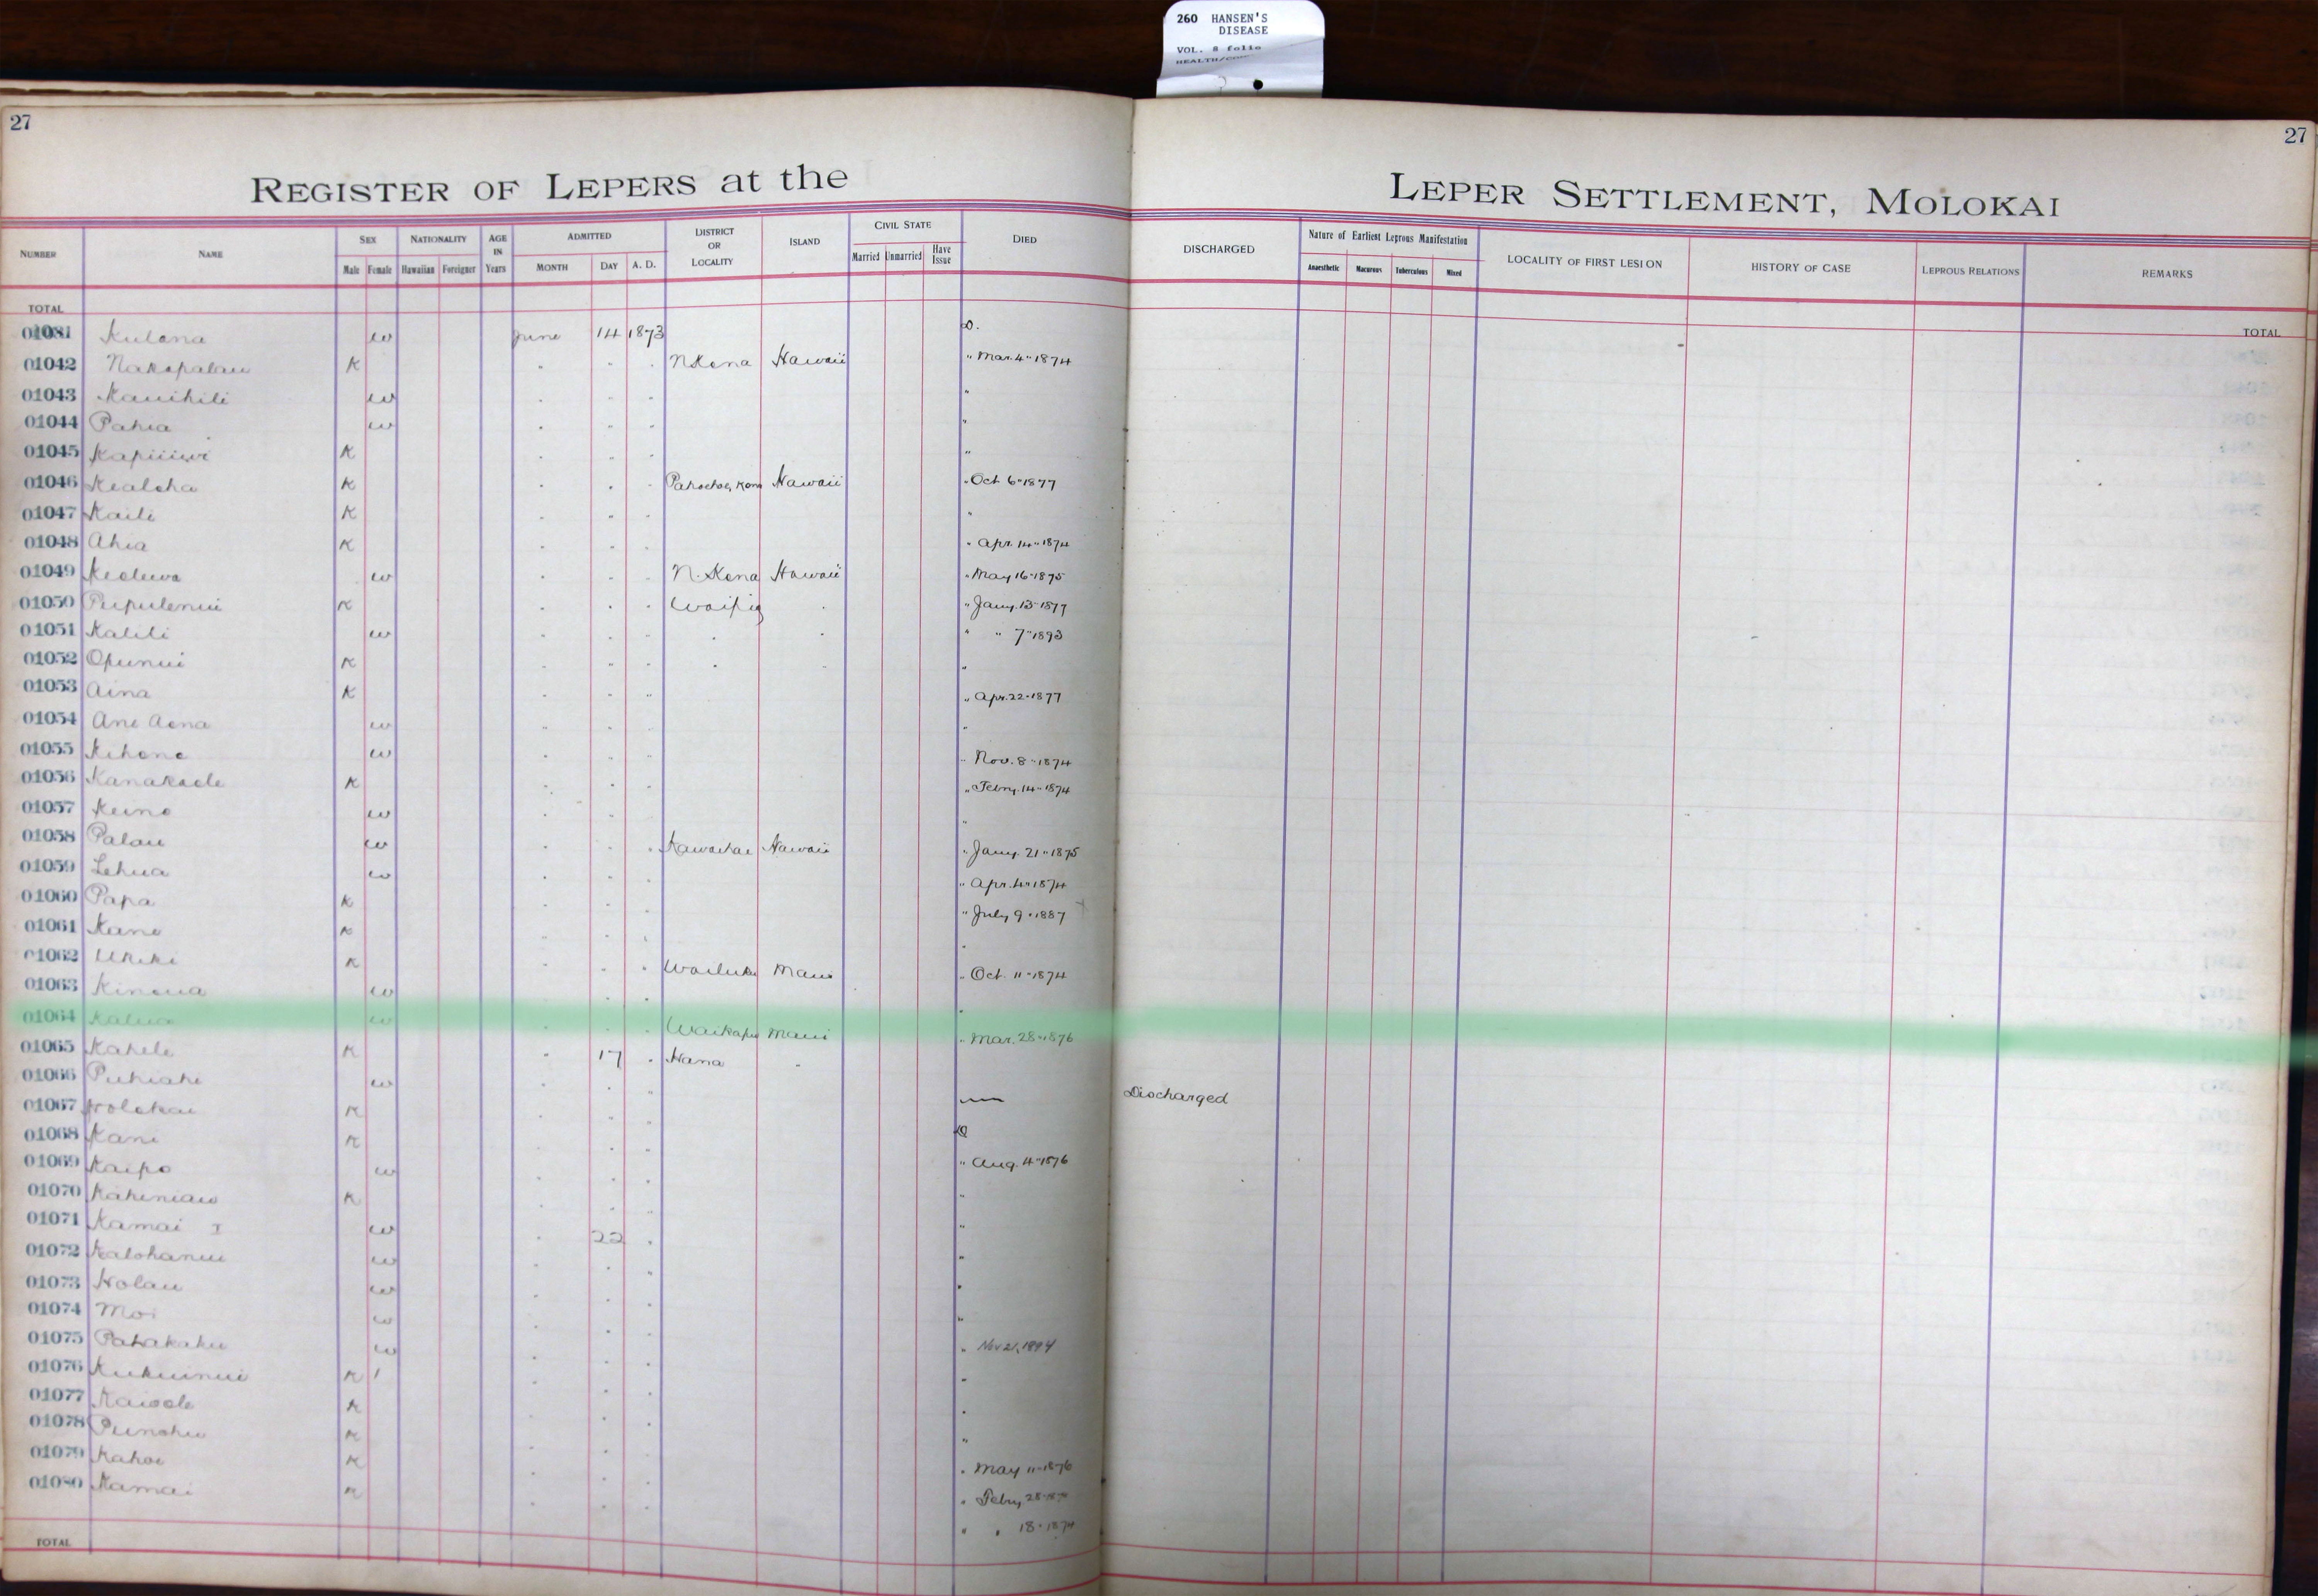 260 HANSEN'S
DISEASE
VOL. 8 folio
27
27
REGISTER OF LEPERS at the LEPER SETTLEMENT, MOLOKAI
NUMBER NAME SEX NATIONALITY AGE IN Years ADMITTED DISTRICT OR LOCALITY ISLAND CIVIL STATE DIED DISCHARGED Nature of Earliest Leprous Manifestation LOCALITY OF FIRST LESION HISTORY OF CASE LEPROUS RELATIONS REMARKS
Male Female Hawaiian Foreigner MONTH DAY A. D. Married Unmarried Have Issue Anaesthetic Macurous Tuberculous Mixed
TOTAL TOTAL
01081 Kulana w June 14 1873 D.
01042 Nakapalau K " " " N Kona Hawaii " Mar. 4 " 1874
01043 Kauihili w " " " "
01044 Pahia w " " " "
01045 K " " " "
01046 Kealoha K " " " Kona Hawaii " Oct 6 " 1877
01047 Kaili K " " " "
01048 Ahia K " " " " Apr. 14 " 1874
01049 w " " " N. Kona Hawaii " May 16 " 1875
01050 Pupulenui K " " " Waipio " " Jany. 13 " 1877
01051 Kalili w " " " " " " " 7 " 1893
01052 Opunui K " " " " " "
01053 Aina K " " " " Apr. 22 " 1877
01054 Ane Aona w " " " "
01055 Kihene w " " " " Nov. 8 " 1874
01056 Kanakaole K " " " " Febry. 14 " 1874
01057 Keino w " " " "
01058 Palau w " " " Kawaihae Hawaii " Jany. 21 " 1875
01059 Lehua w " " " " Apr. 4 " 1874
01060 Papa K " " " " July 9 " 1887
01061 Kane K " " " "
01062 Ukeke K " " " Wailuku Maui " Oct. 11 " 1874
01063 Kinoua w " " " "
01064 Kalua w " " " Waikapu Maui " Mar. 28 " 1876
01065 Kahele K " 17 " Hana "
01066 Puhiahi w " " " — Discharged
01067 Holokai K " " " D
01068 Kani K " " " " Aug. 4 " 1876
01069 Kaipo w " " " "
01070 K " " " "
01071 Kamai I w " 22 " "
01072 Kalohanui w " " " "
01073 Holau w " " " "
01074 Moi w " " " " Nov 21, 1894
01075 Pahakahu w " " " "
01076 Kukuinui K " " " "
01077 Kaiaole K " " " "
01078 Punohu K " " " " May 11 " 1876
01079 Kahoe K " " " " Febry 28
01080 Kamai K " " " " " 18 " 1874
TOTAL